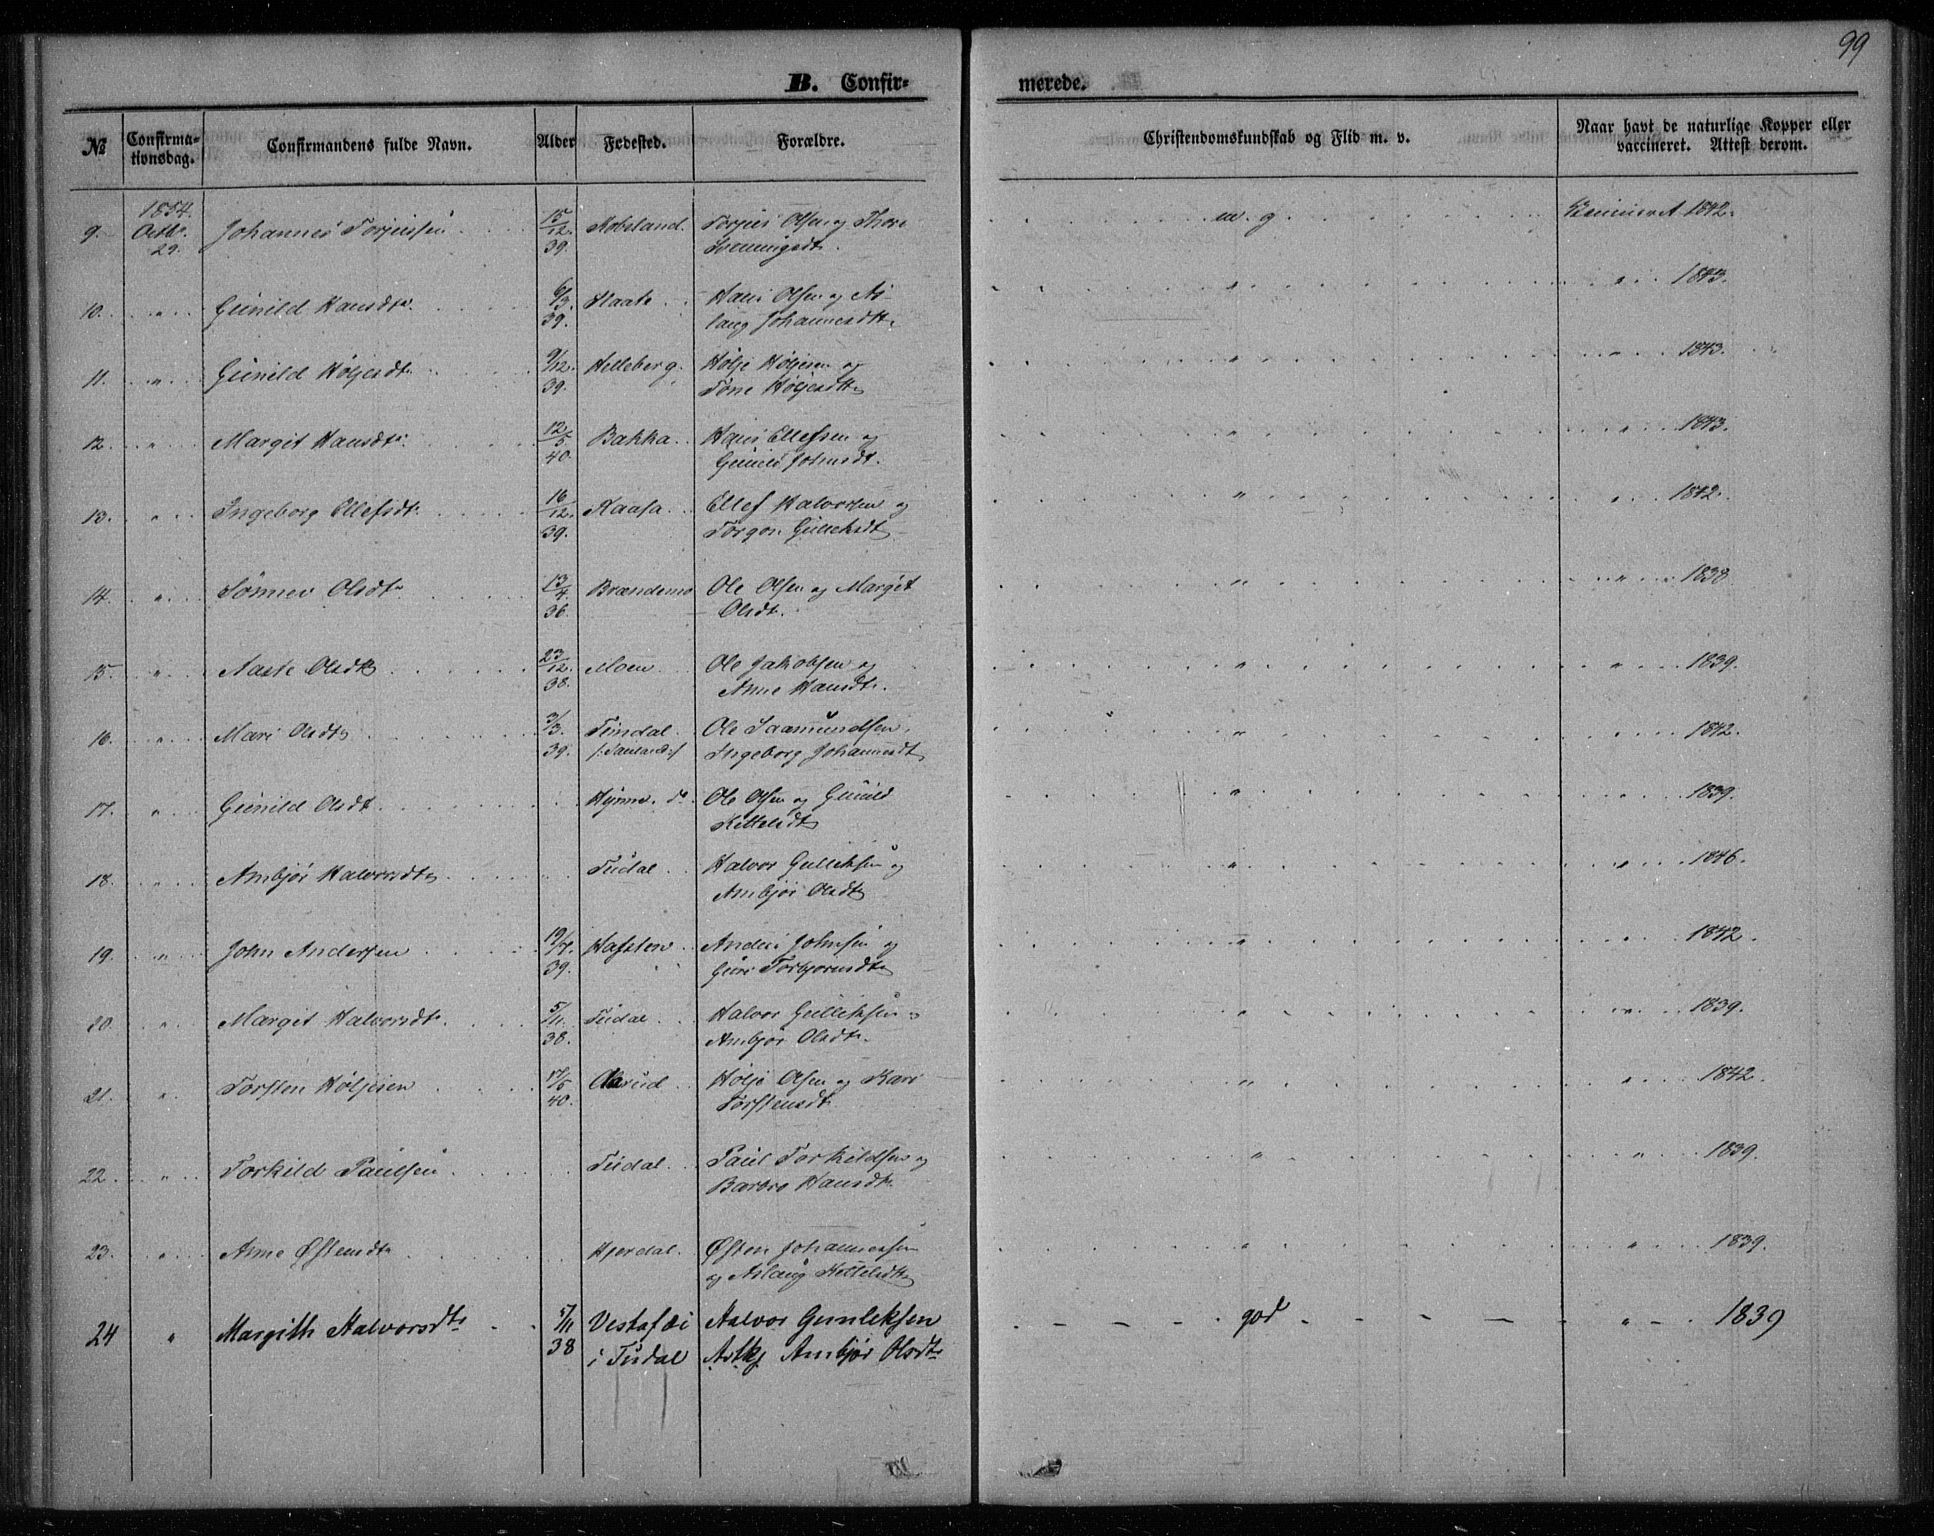 99
B. Confir-
merede.
№ Confirma-tionsdag. Confirmandens fulde Navn. Alder Fødested. Forældre. Christendomskundskab og Flid m. v. Naar havt de naturlige Kopper eller vaccineret. Attest derom.
9. 1854. Octbr. 29. Johannes Torjeussen 15/12 39. Torjus Olsen og Thore m. g. 1842.
10. " Gunild Hansdtr. 6/3 39. Haate Hans Olsen og As-
laug Johannesdtr. " " 1843.
11. " Gunild Høljesdt. 9/12 39. Helleberg. Hølje Høljesen og
Tone Høljesdtr " " 1843.
12. " Margit Hansdtr. 12/5 40. Bakka Hans Ellefsen og
Gunild Johnsdt. " " 1843.
13. " Ingeborg Ellefsdt. 16/12 39. Kaasa Ellef Halvorsen og
Torgon Gulleksdt " " 1842.
14. " Sønnev Olsdtr 13/4 36. Brændemo Ole Olsen og Margit
Olsdt. " " 1838
15. " Aaste Olsdtr 23/12 38. Moen Ole Jakobsen og
Anne Hansdtr. " " 1839.
16. " Mari Olsdtr 3/3 39. Tindal Ole Saamundsen,
Ingeborg Johannesdt " " 1842.
17. " Gunild Olsdt. do. Ole Olsen og Gunild
Kittelsdtr " " 1839.
18. " Ambjør Halvorsdtr Tudal Halvor Gulleksen og
Ambjør Olsdtr " " 1846.
19. " John Andersen 19/7 39. Hafsten Anders Johnsen og
Guro Torbjornsdtr " " 1842
20. " Margit Halvorsdtr. 5/11 38. Tudal Halvor Gulleksen og
Ambjør Olsdtr. " " 1839.
21. " Torsten Høljesen 17/5 40. Aarud Hølje Olsen og Kari
Torstensdt. " " 1842.
22. " Torkild Paulsen Tudal Paul Torkildsen og
Barbro Hansdtr. " " 1839.
23. " Anne Østensdtr Hjerdal. Østen Johannessen
og Aslaug Kettelsdtr " " 1839.
24 " Margith Halvorsdtr 5/11 38 Vestafæi
i Tudal Halvor Gunleksen
Ambjør Olsdtr god " 1839